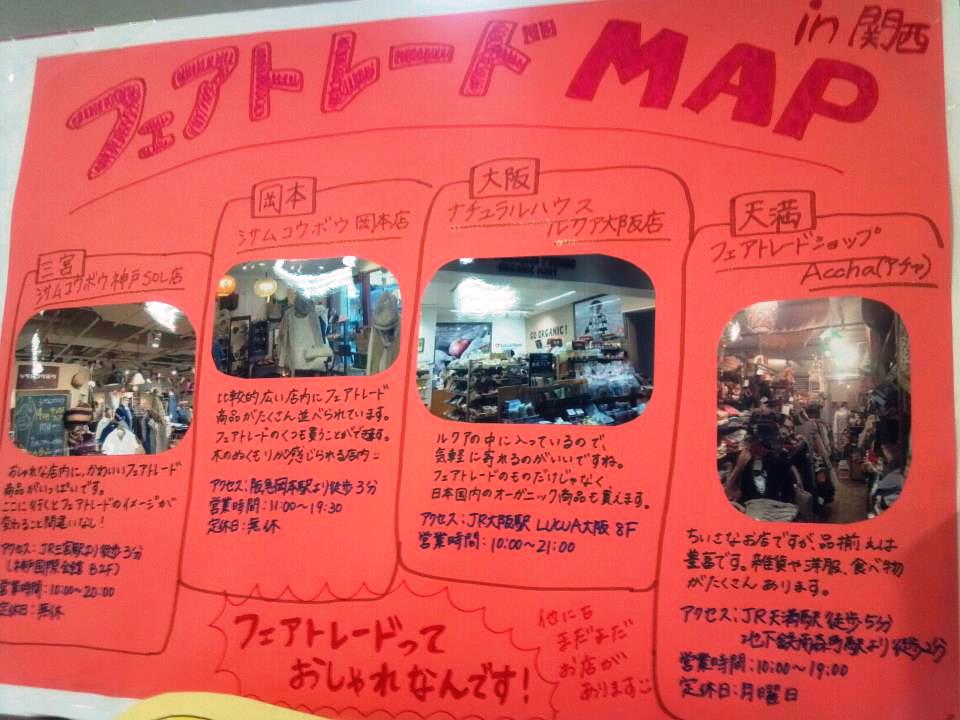 フェアトレード MAP in 関西
三宮
シサムコウボウ 神戸SOL店
おしゃれな店内に、かわいいフェアトレード
商品がいっぱいです。
ここに行くとフェアトレードのイメージが
変わること間違いなし！
アクセス：JR三宮駅より徒歩3分
（神戸国際会館 B2F）
営業時間：10:00～20:00
定休日：無休
岡本
シサムコウボウ 岡本店
比較的広い店内にフェアトレード
商品がたくさん並べられています。
フェアトレードのくつも買うことができます。
木のぬくもりが感じられる店内
アクセス：阪急岡本駅より徒歩3分
営業時間：11:00～19:30
定休日：無休
大阪
ナチュラルハウス
ルクア大阪店
GO ORGANIC!
ルクアの中に入っているので
気軽に寄れるのがいいですね。
フェアトレードのものだけじゃなく、
日本国内のオーガニック商品も買えます。
アクセス：JR大阪駅 LUCUA大阪 8F
営業時間：10:00～21:00
天満
フェアトレードショップ
Accha(アチャ)
ちいさなお店ですが、品揃えは
豊富です。雑貨や洋服、食べ物
がたくさんあります。
アクセス：JR天満駅 徒歩5分
地下鉄南森町駅より徒歩2分
営業時間：10:00～19:00
定休日：月曜日
フェアトレードって
おしゃれなんです！
他にも
まだまだ
お店が
あります